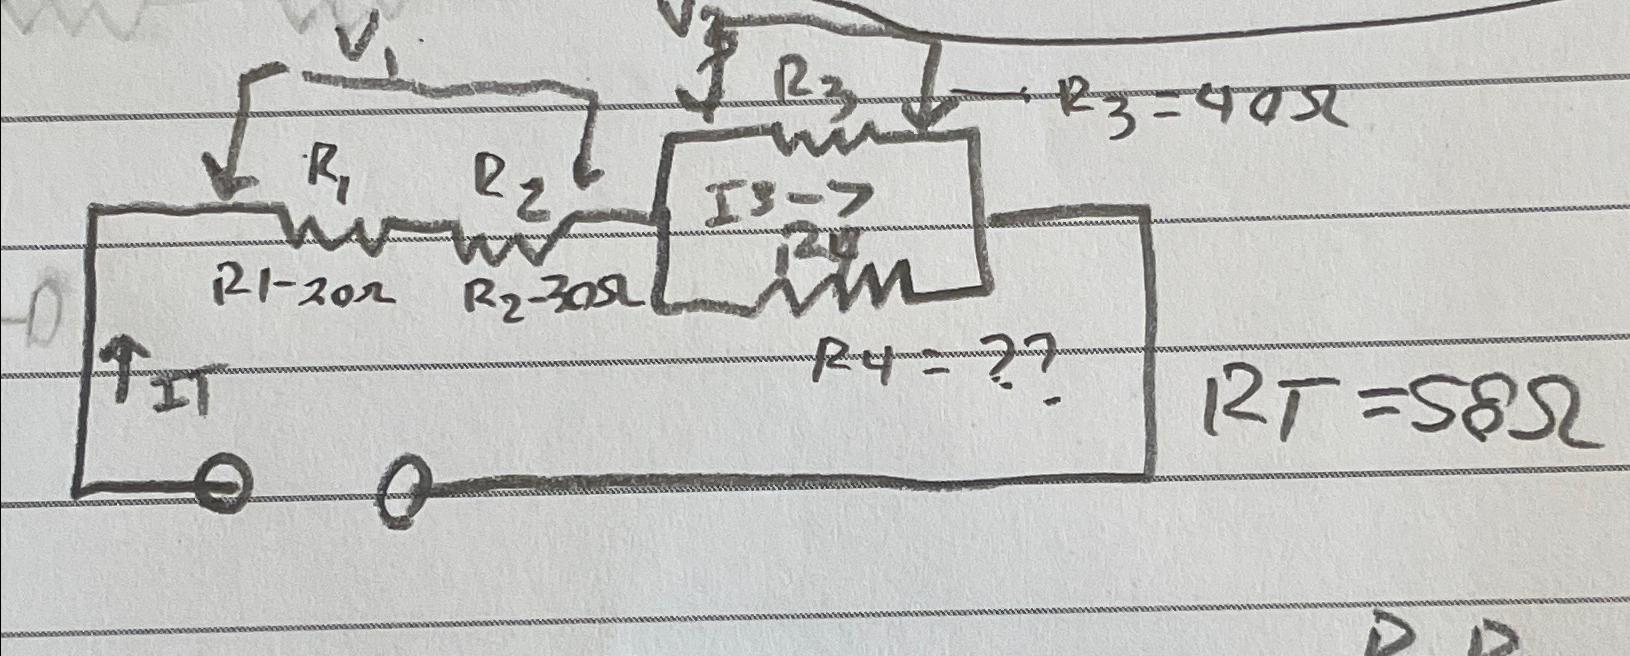 V1
V2
R3
R3=40Ω
R1
R2
I3->
R4
R1-20Ω
R2-30Ω
R4=??
IT
RT=58Ω